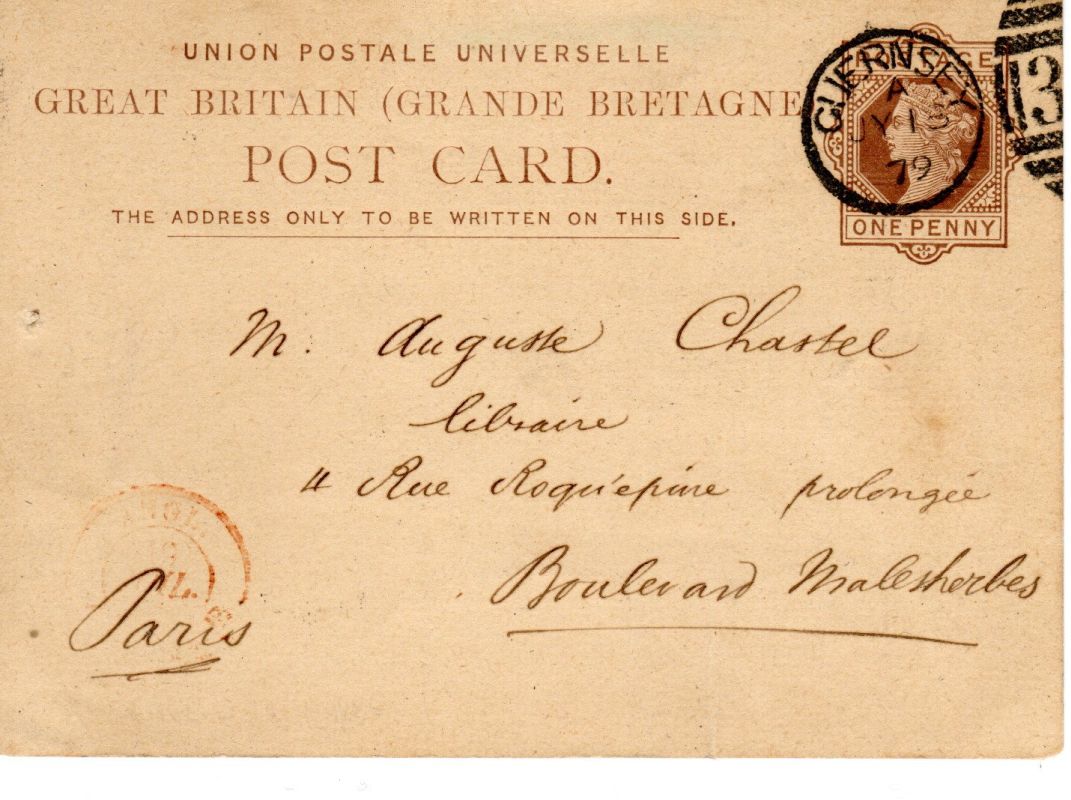 UNION POSTALE UNIVERSELLE
GREAT BRITAIN (GRANDE BRETAGNE
POST CARD.
THE ADDRESS ONLY TO BE WRITTEN ON THIS SIDE.
GUERNSEY
A
JY 18
79
ONE PENNY
M. Auguste Chastel
libraire
4 Rue Roquépine prolongée
Boulevard Malesherbes
Paris
ANGL.